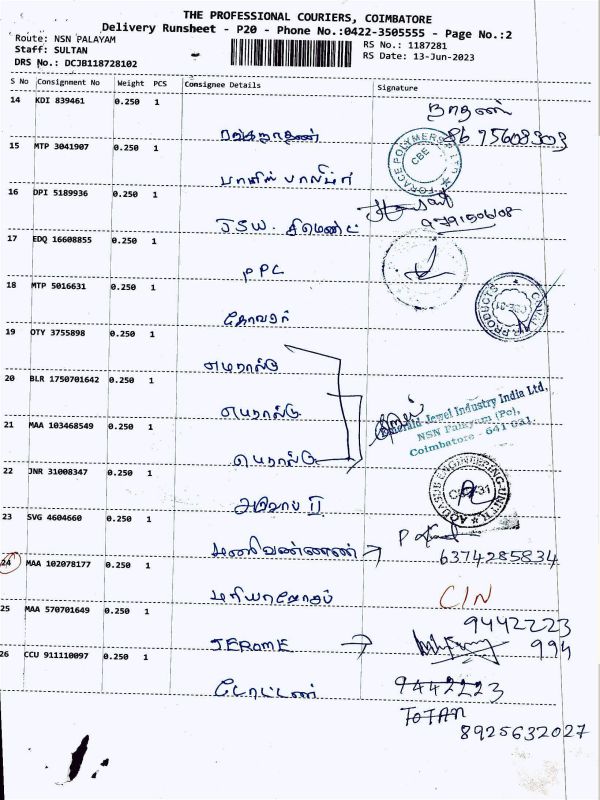 THE PROFESSIONAL COURIERS, COIMBATORE
Delivery Runsheet - P20 - Phone No.:0422-3505555 - Page No.:2
Route: NSN PALAYAM
Staff: SULTAN
DRS No.: DCJB118728102
RS No.: 1187281
RS Date: 13-Jun-2023
S No Consignment No Weight PCS Consignee Details Signature
14 KDI 839461 0.250 1
86 75608303
15 MTP 3041907 0.250 1
FORACE POLYMERS CBE
16 DPI 5189936 0.250 1
JSW. சிமெண்ட்
9791506108
17 EDQ 16608855 0.250 1
PPC
18 MTP 5016631 0.250 1
PRODUCTS
கோவை
19 OTY 3755898 0.250 1
எமரால்டு
20 BLR 1750701642 0.250 1
எமரால்டு
Emerald Jewel Industry India Ltd,
NSN Palayam (Po),
Coimbatore - 641 031.
21 MAA 103468549 0.250 1
எமரால்டு
22 JNR 31008347 0.250 1
AQUASUB ENGINEERING-UNIT II
II
23 SVG 4604660 0.250 1
மணிவண்ணன்
6374285834
24 MAA 102078177 0.250 1
C/N
25 MAA 570701649 0.250 1
JEROME
9442223
994
26 CCU 911110097 0.250 1
டோட்டன்
9442223
TOTAN
8925632027